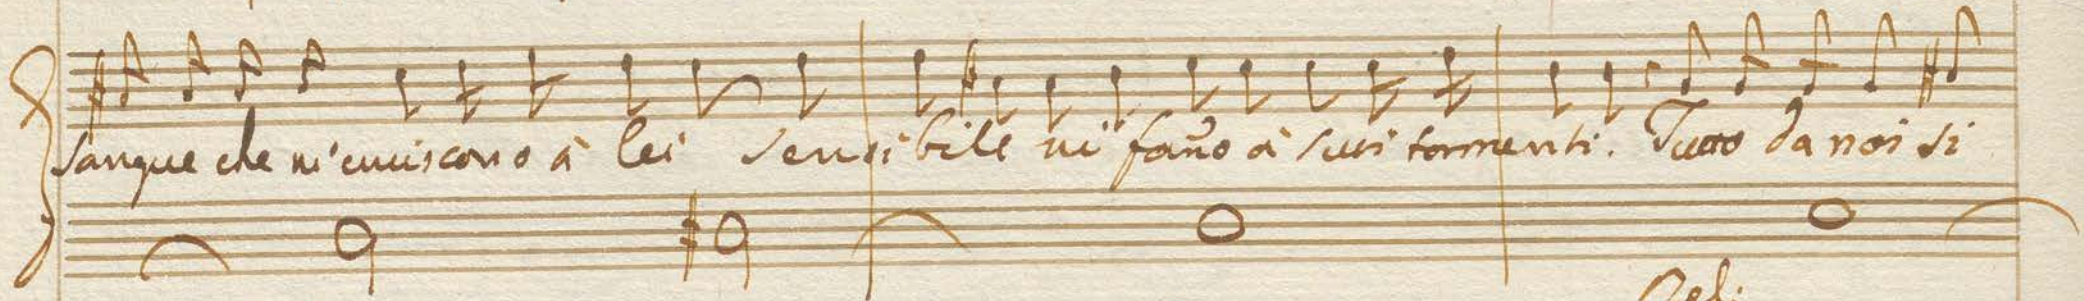 sangue che n'eniscono à lei sensibile ni fano à suoi tormenti. Tutto da noi si